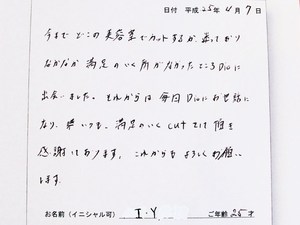 日付 平成25年4月7日
今までどこの美容室でカットするか迷っており
なかなか満足のいく所がなかったところDioに
出会いました。それからは毎回Dioにお世話に
なり、いつも、満足のいくcutをして頂き
感謝しております。これからもよろしくお願い
します。
お名前(イニシャル可) I.Y ご年齢25才